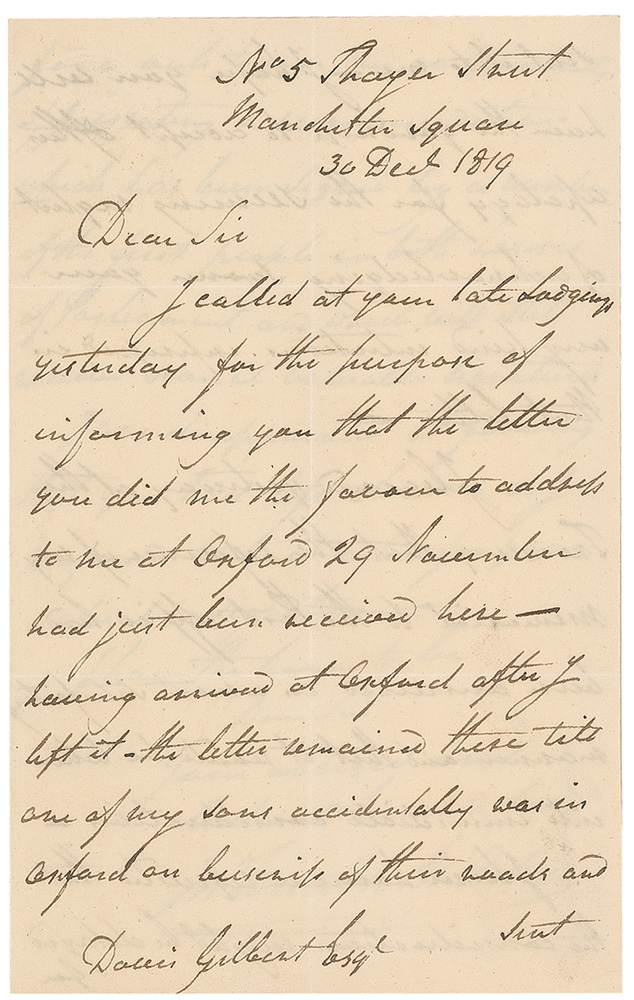 No 5 Thayer Street
Manchester Square
30 Decr 1819
Dear Sir
I called at your late Lodgings
yesterday for the purpose of
informing you that the letter
you did me the favour to address
to me at Oxford 29 November
had just been received here —
having arrived at Oxford after I
left it - the letter remained there till
one of my sons accidentally was in
Oxford on business of their roads and
sent
Davies Gilbert Esqr